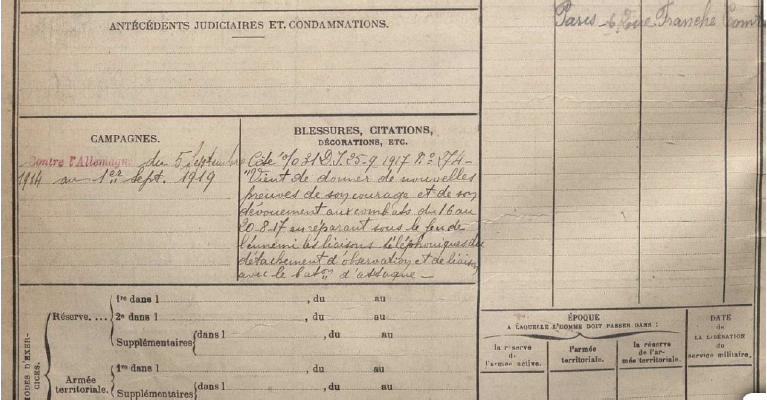 ANTÉCÉDENTS JUDICIAIRES ET CONDAMNATIONS.
Paris 6 Rue Franche Comté
CAMPAGNES.
Contre l'Allemagne du 5 Septembre
1914 au 1er Sept. 1919
BLESSURES, CITATIONS,
DÉCORATIONS, ETC.
Cité 31 D.I. 25-9 1917 No 274-
"Vient de donner de nouvelles
preuves de son courage et de son
dévouement aux combats du 16 au
20-8-17 en réparant sous le feu de
l'ennemi les liaisons téléphoniques du
détachement d'observation et de liaison
avec le baton d'assaque -
ÉPOQUE
A LAQUELLE L'HOMME DOIT PASSER DANS :
DATE
de
LA LIBÉRATION
du
service militaire.
la réserve
de
l'armée active.
l'armée
territoriale.
la réserve
de l'ar-
mée territoriale.
ODES D'EXER-
CICES.
Réserve....
1re dans l , du au
2e dans l , du au
Supplémentaires dans l , du au
Armée
territoriale.
1re dans l , du au
Supplémentaires dans l , du au